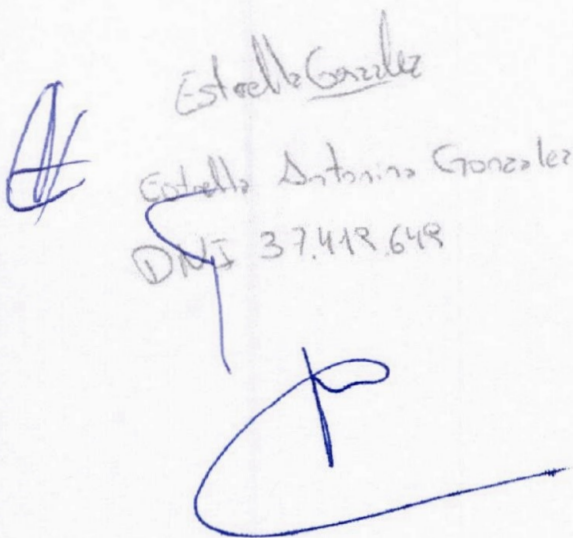 Estrella Gonzalez
Estrella Antonina Gonzalez
DNI 37.418.648